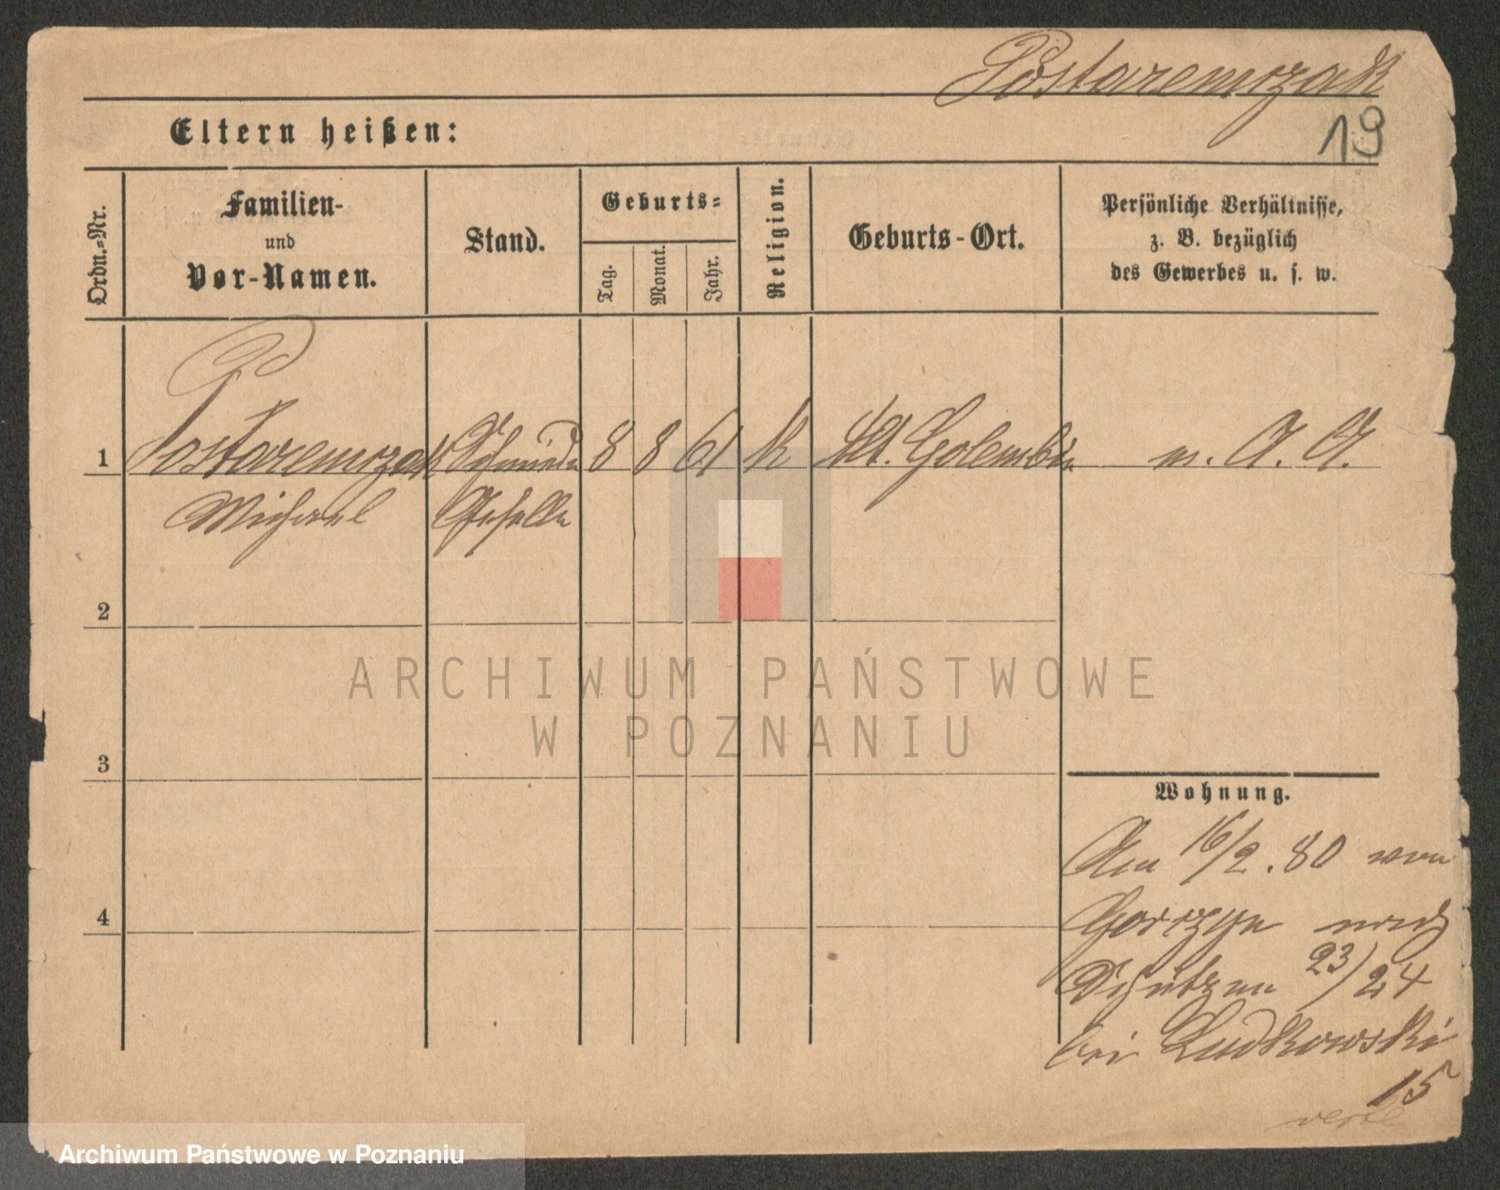 Postaremczak
19
Eltern heißen:
Ordn.=Nr.
Familien-
und
Vor-Namen.
Stand.
Geburts=
Tag.
Monat.
Jahr.
Religion.
Geburts-Ort.
Persönliche Verhältnisse,
z. B. bezüglich
des Gewerbes u. s. w.
1 Postaremczak Schmiede 8 8 61 k Kl. Golembin A. A.
Michael Geselle
2
3
4
Wohnung.
Am 16/2.80 von
Gorzyn nach
Schützen 23/24
bei Ludkowski
15
verte
ARCHIWUM PAŃSTWOWE
W POZNANIU
Archiwum Państwowe w Poznaniu